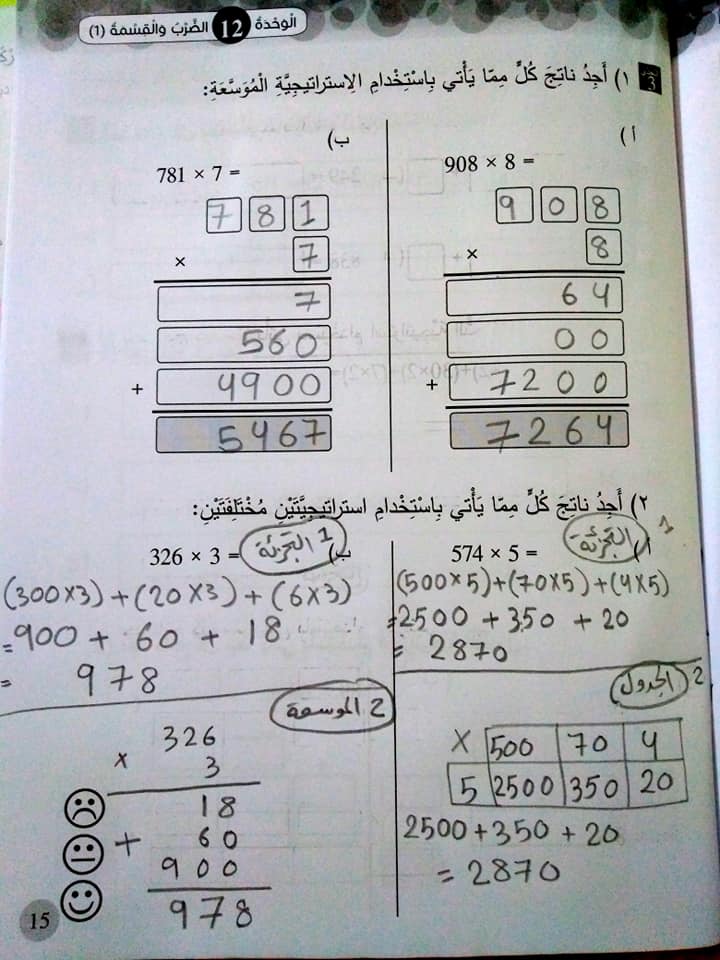 الْوَحْدَةُ 12 الضَّرْبُ وَالْقِسْمَةُ (1)
3
١) أَجِدُ ناتِجَ كُلٍّ مِمّا يَأْتي بِاسْتِخْدامِ الاِستراتيجِيَّةِ الْمُوَسَّعَةِ:
أ)
908 × 8 =
9 0 8
× 8
64
00
+ 7200
7264
ب)
781 × 7 =
7 8 1
× 7
7
560
+ 4900
5467
٢) أَجِدُ ناتِجَ كُلٍّ مِمّا يَأْتي بِاسْتِخْدامِ استراتيجِيَّتَيْنِ مُخْتَلِفَتَيْنِ:
أ) 574 × 5 =
1 التجزئة
(500×5)+(70×5)+(4×5)
= 2500 + 350 + 20
= 2870
2 الجدول
× 500 70 4
5 2500 350 20
2500+350+20
= 2870
ب) 326 × 3 =
1 التجزئة
(300×3)+(20×3)+(6×3)
= 900 + 60 + 18
= 978
2 الموسعة
326
× 3
18
+ 60
900
978
15